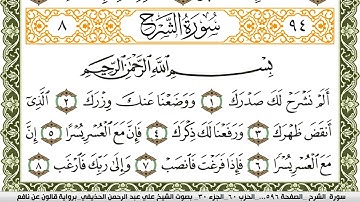 ٩٤ سُورَةُ الشَّرْحِ ٨
بِسْمِ اللَّهِ الرَّحْمَٰنِ الرَّحِيمِ
أَلَمْ نَشْرَحْ لَكَ صَدْرَكَ ١ وَوَضَعْنَا عَنكَ وِزْرَكَ ٢ الَّذِي
أَنقَضَ ظَهْرَكَ ٣ وَرَفَعْنَا لَكَ ذِكْرَكَ ٤ فَإِنَّ مَعَ الْعُسْرِ يُسْرًا ٥ إِنَّ
مَعَ الْعُسْرِ يُسْرًا ٦ فَإِذَا فَرَغْتَ فَانصَبْ ٧ وَإِلَىٰ رَبِّكَ فَارْغَب ٨
سورة الشرح .. الصفحة ٥٩٦ ... الحزب ٦٠ . الجزء ٣٠ . بصوت الشيخ علي عبد الرحمن الحذيفي . برواية قالون عن نافع